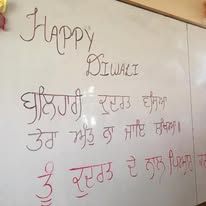 HAPPY
DIWALI
ਬਲਿਹਾਰੀ ਕੁਦਰਤ ਵਸਿਆ
ਤੇਰਾ ਅੰਤੁ ਨਾ ਜਾਇ ਲਖਿਆ।
ਤੂੰ ਕੁਦਰਤ ਦੇ ਨਾਲ ਪਿਆਰ